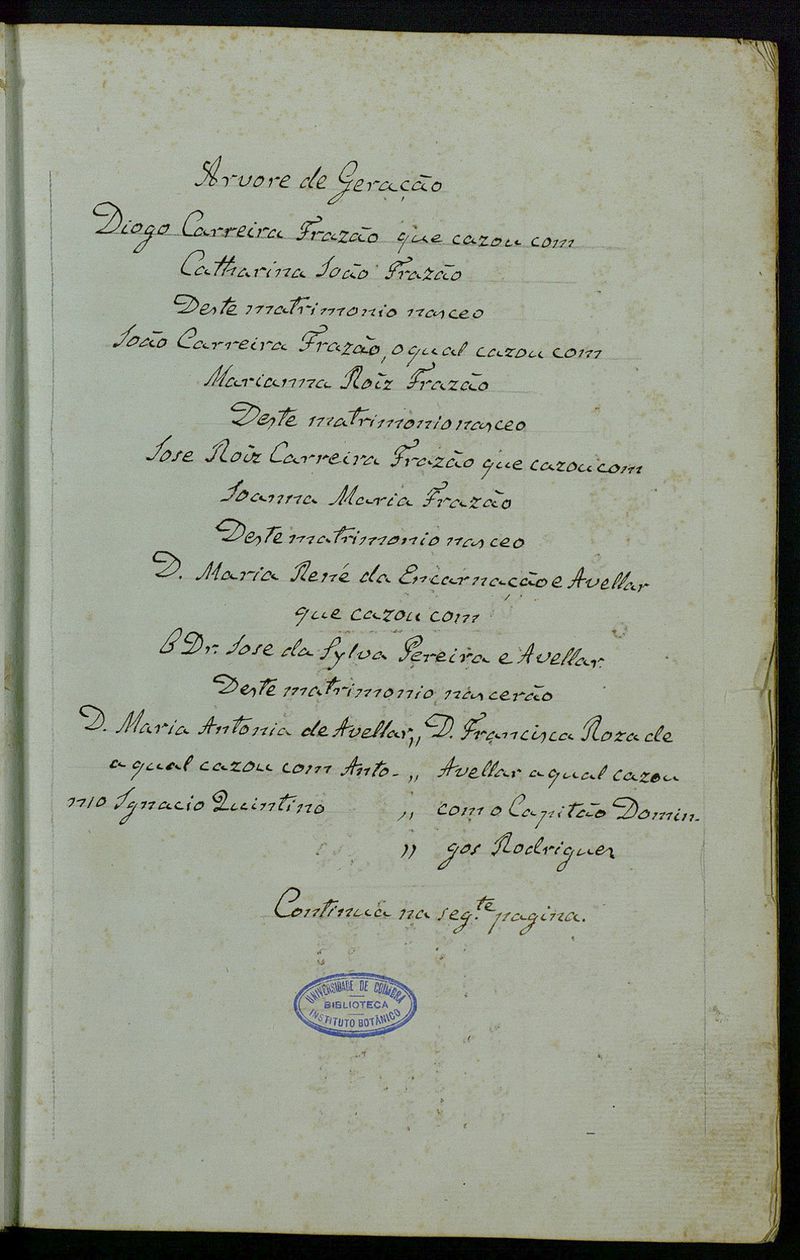 Arvore de Geração
Diogo Carreira Frazão que cazou com
Catharina João Frazão
Deste matrimonio nasceo
João Carreira Frazão, o qual cazou com
Marianna Roiz Frazão
Deste matrimonio nasceo
Jose Roiz Carreira Frazão que cazou com
Joanna Maria Frazão
Deste matrimonio nasceo
D. Maria René da Encarnação e Avellar
que cazou com
O Dr. Jose da Sylva Pereira e Avellar
Deste matrimonio nascerão
D. Maria Antonia de Avellar,, D. Francisca Roza de
a qual cazou com Anto- ,, Avellar a qual cazou
nio Ignacio Quintino ,, com o Capitão Domin-
,, gos Rodrigues
Continúa na seg.te pagina.
UNIVERSIDADE DE COIMBRA
BIBLIOTECA
INSTITUTO BOTÂNICO